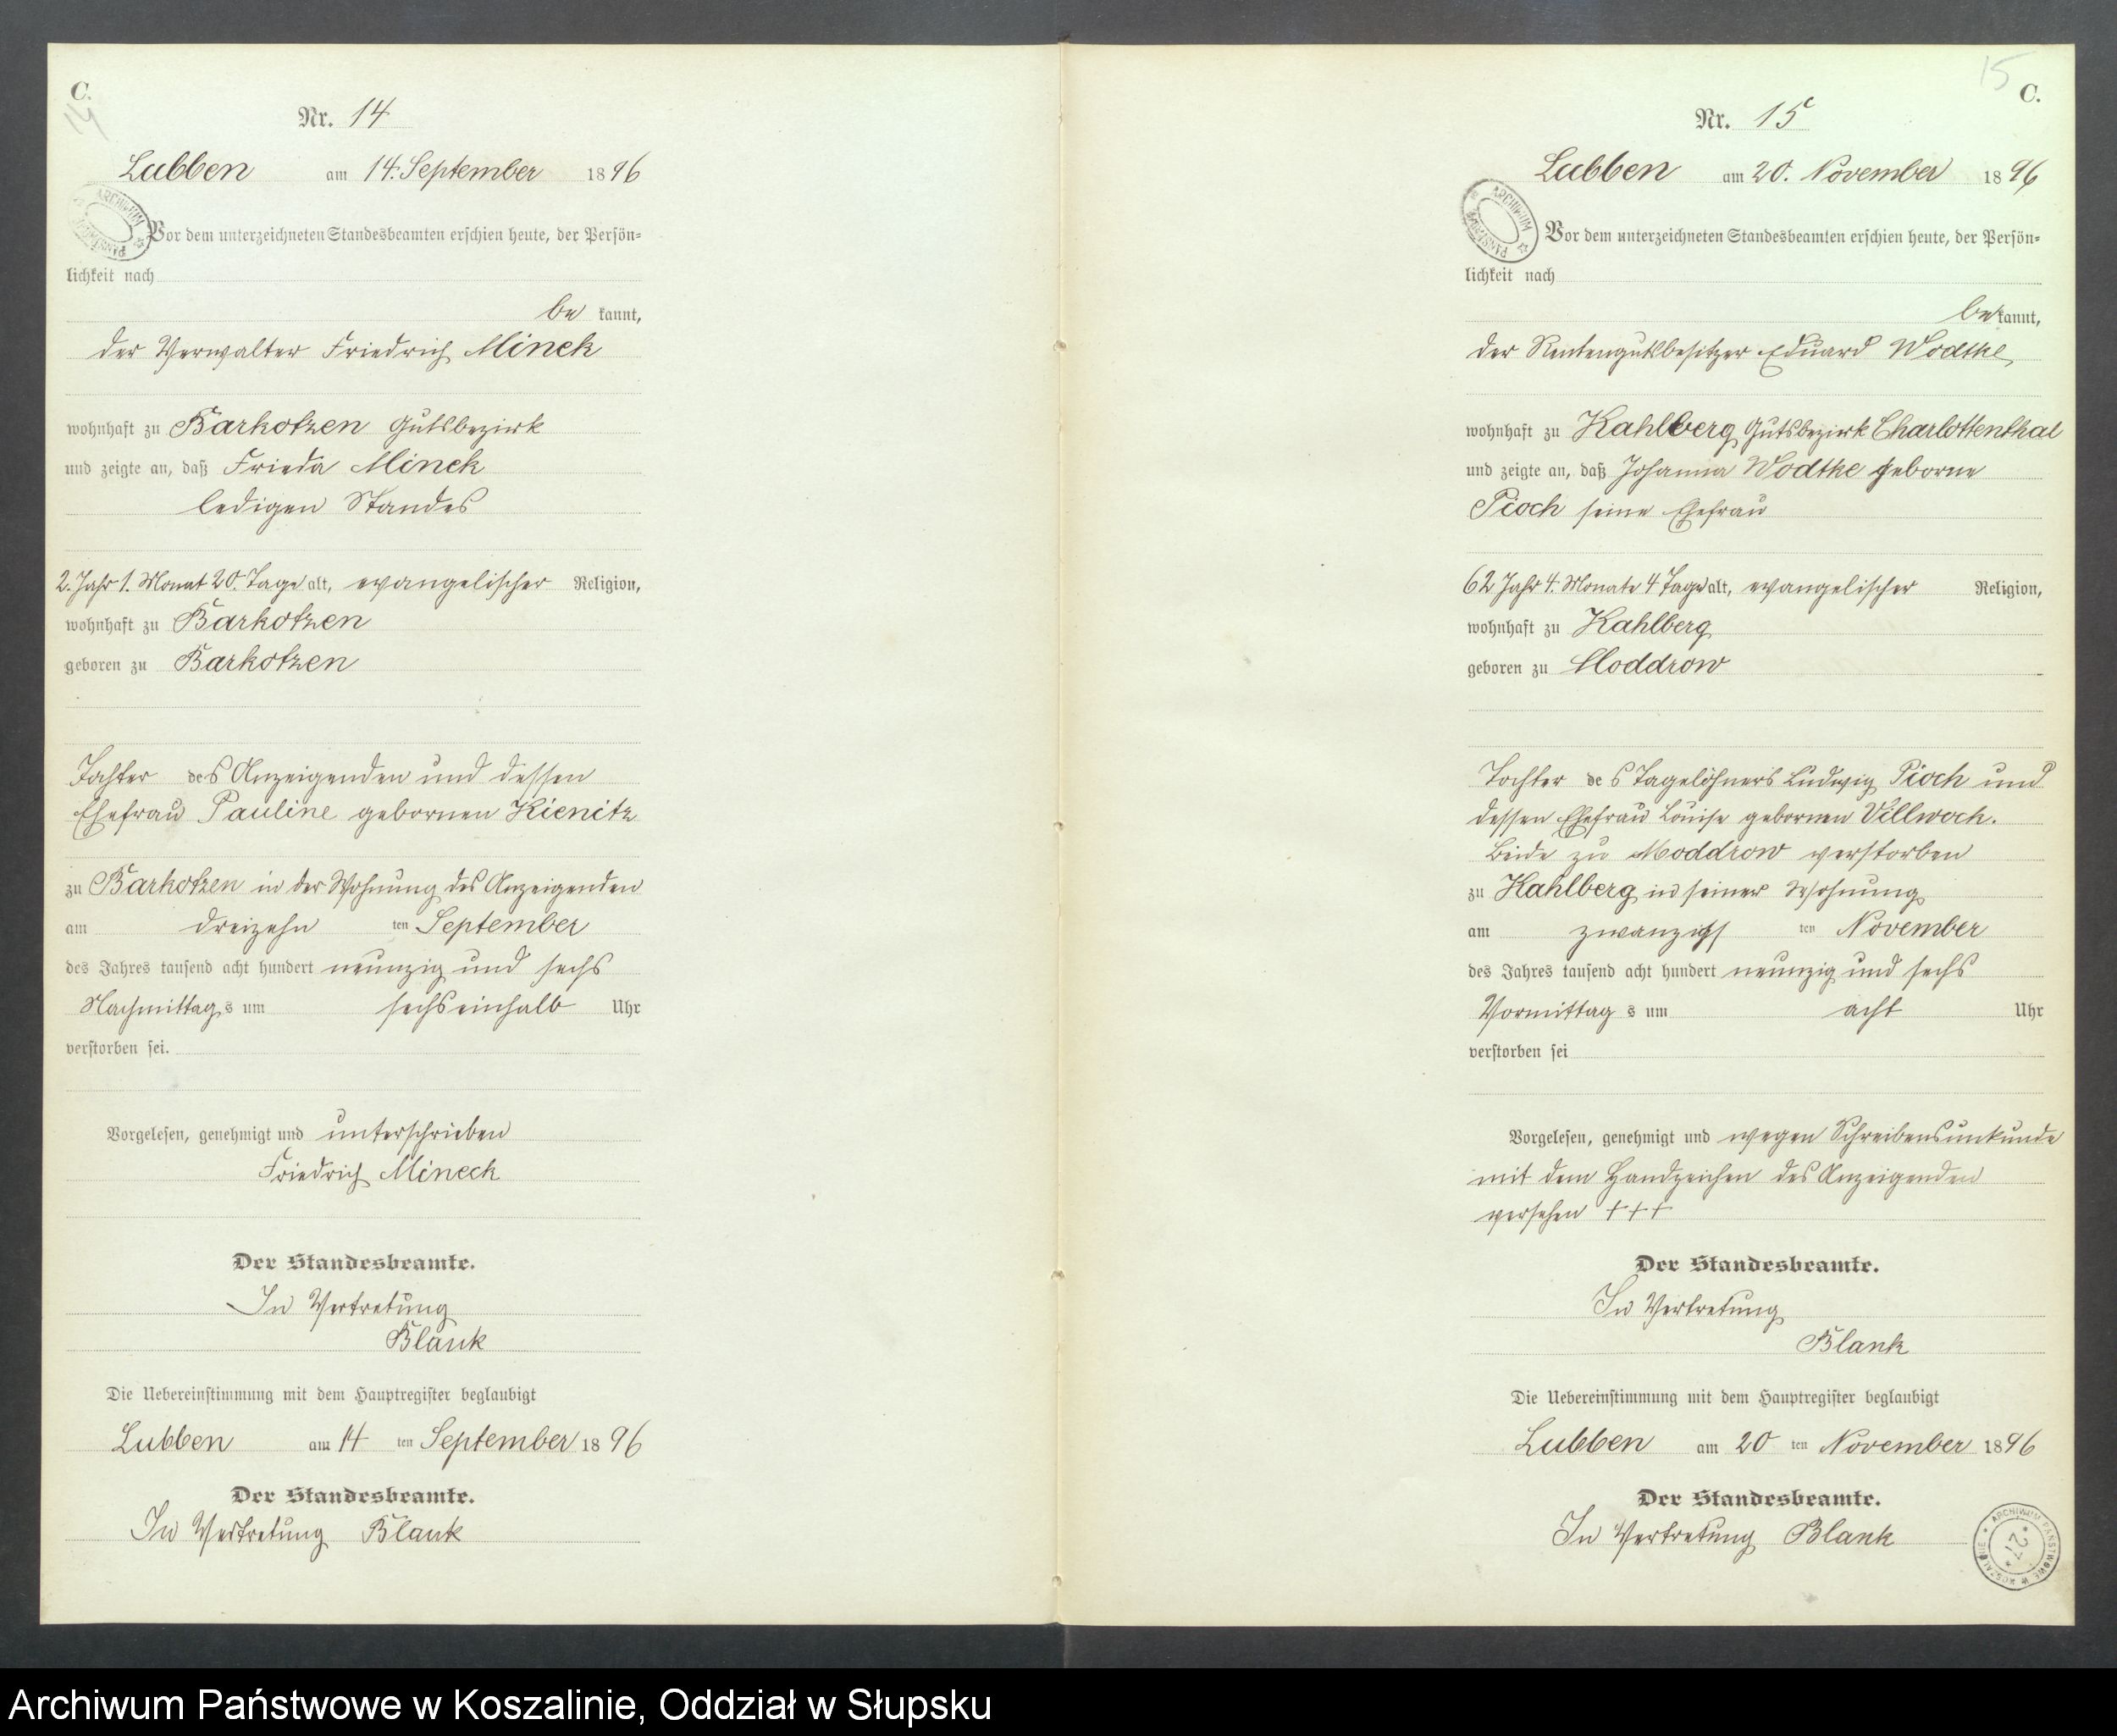 C.
14
Nr. 14
Lubben am 14. September 1896
Vor dem unterzeichneten Standesbeamten erschien heute, der Persön-
lichkeit nach
be kannt,
der Verwalter Friedrich Minek
wohnhaft zu Barkotzen Gutsbezirk
und zeigte an, daß Frieda Minek
ledigen Standes
2. Jahr 1. Monat 20. Tage alt, evangelischer Religion,
wohnhaft zu Barkotzen
geboren zu Barkotzen
Tochter des Anzeigenden und dessen
Ehefrau Pauline gebornen Kienitz
zu Barkotzen in der Wohnung des Anzeigenden
am dreizehn ten September
des Jahres tausend acht hundert neunzig und sechs
Nachmittags um sechseinhalb Uhr
verstorben sei.
Vorgelesen, genehmigt und unterschrieben
Friedrich Mineck
Der Standesbeamte.
In Vertretung
Blank
Die Uebereinstimmung mit dem Hauptregister beglaubigt
Lubben am 14 ten September 1896
Der Standesbeamte.
In Vertretung Blank
15
C.
Nr. 15
Lubben am 20. November 1896
ARCHIWUM
Vor dem unterzeichneten Standesbeamten erschien heute, der Persön-
lichkeit nach
bekannt,
der Rentengutsbesitzer Eduard Wodtke,
wohnhaft zu Kahlberg Gutsbezirk Charlottenthal
und zeigte an, daß Johanna Wodtke geborne
Pioch seine Ehefrau
62 Jahr 4. Monate 4 Tage alt, evangelischer Religion,
wohnhaft zu Kahlberg
geboren zu Moddrow
Tochter des Tagelöhners Ludwig Pioch und
dessen Ehefrau Louise gebornen Villwock.
Beide zu Moddrow verstorben
zu Kahlberg in seiner Wohnung
am zwanzigs ten November
des Jahres tausend acht hundert neunzig und sechs
Vormittags um acht Uhr
verstorben sei
Vorgelesen, genehmigt und wegen Schreibensunkunde
mit dem Handzeichen des Anzeigenden
versehen +++
Der Standesbeamte.
In Vertretung
Blank
Die Uebereinstimmung mit dem Hauptregister beglaubigt
Lubben am 20 ten November 1896
Der Standesbeamte.
In Vertretung Blank
ARCHIWUM PAŃSTWOWE W KOSZALINIE
* 27 *
Archiwum Państwowe w Koszalinie, Oddział w Słupsku